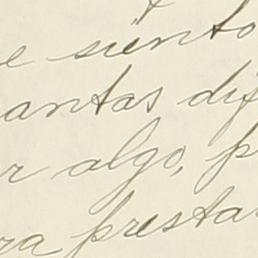 e siento
antas dif
r algo, p
ra presta